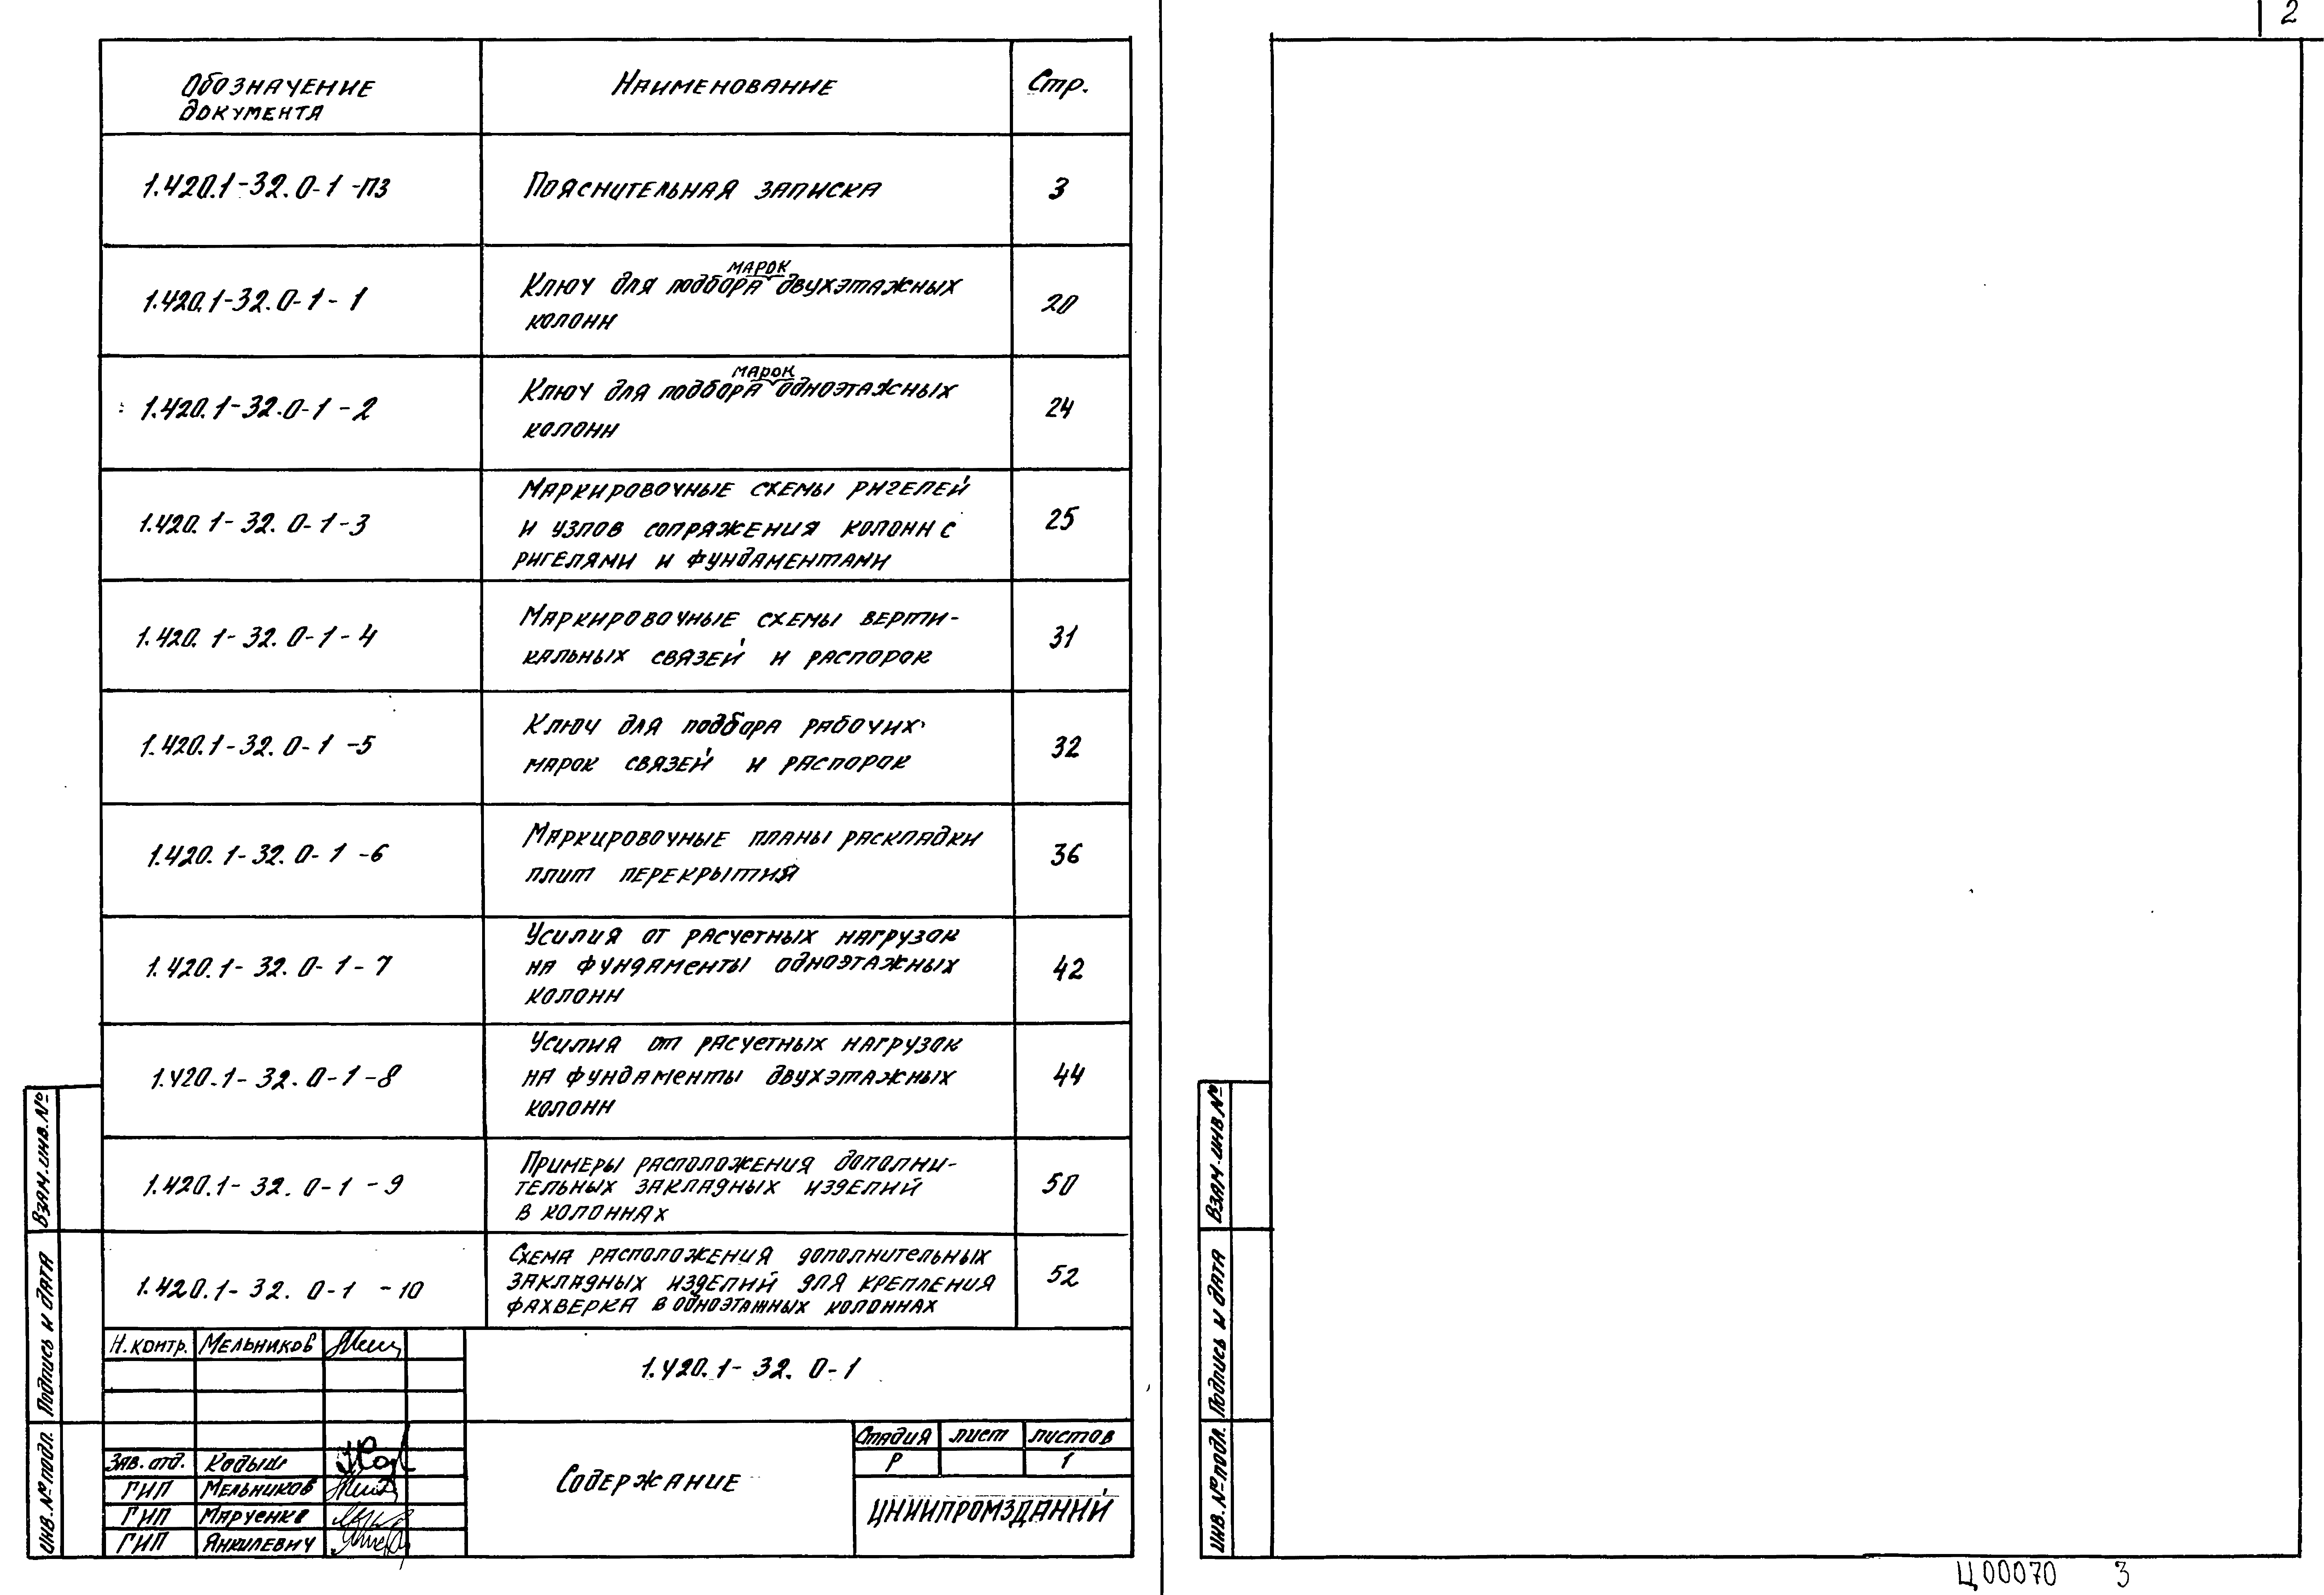 2
Обозначение
документа
Наименование
Стр.
1.420.1-32.0-1-ПЗ
Пояснительная записка
3
1.420.1-32.0-1-1
марок
Ключ для подбора двухэтажных
колонн
20
1.420.1-32.0-1-2
марок
Ключ для подбора одноэтажных
колонн
24
1.420.1-32.0-1-3
Маркировочные схемы ригелей
и узлов сопряжения колонн с
ригелями и фундаментами
25
1.420.1-32.0-1-4
Маркировочные схемы верти-
кальных связей и распорок
31
1.420.1-32.0-1-5
Ключ для подбора рабочих
марок связей и распорок
32
1.420.1-32.0-1-6
Маркировочные планы раскладки
плит перекрытия
36
1.420.1-32.0-1-7
Усилия от расчетных нагрузок
на фундаменты одноэтажных
колонн
42
1.420.1-32.0-1-8
Усилия от расчетных нагрузок
на фундаменты двухэтажных
колонн
44
1.420.1-32.0-1-9
Примеры расположения дополни-
тельных закладных изделий
в колоннах
50
1.420.1-32.0-1-10
Схема расположения дополнительных
закладных изделий для крепления
фахверка в одноэтажных колоннах
52
Н.контр. Мельников
1.420.1-32.0-1
Зав. отд. Кодыш
ГИП Мельников
ГИП Марченко
ГИП Янкилевич
Содержание
Стадия Лист Листов
Р 1
ЦНИИПРОМЗДАНИЙ
Взам.инв.№
Подпись и дата
Инв.№подл.
Взам.инв№
Подпись и дата
Инв.№подл.
Ц00070 3